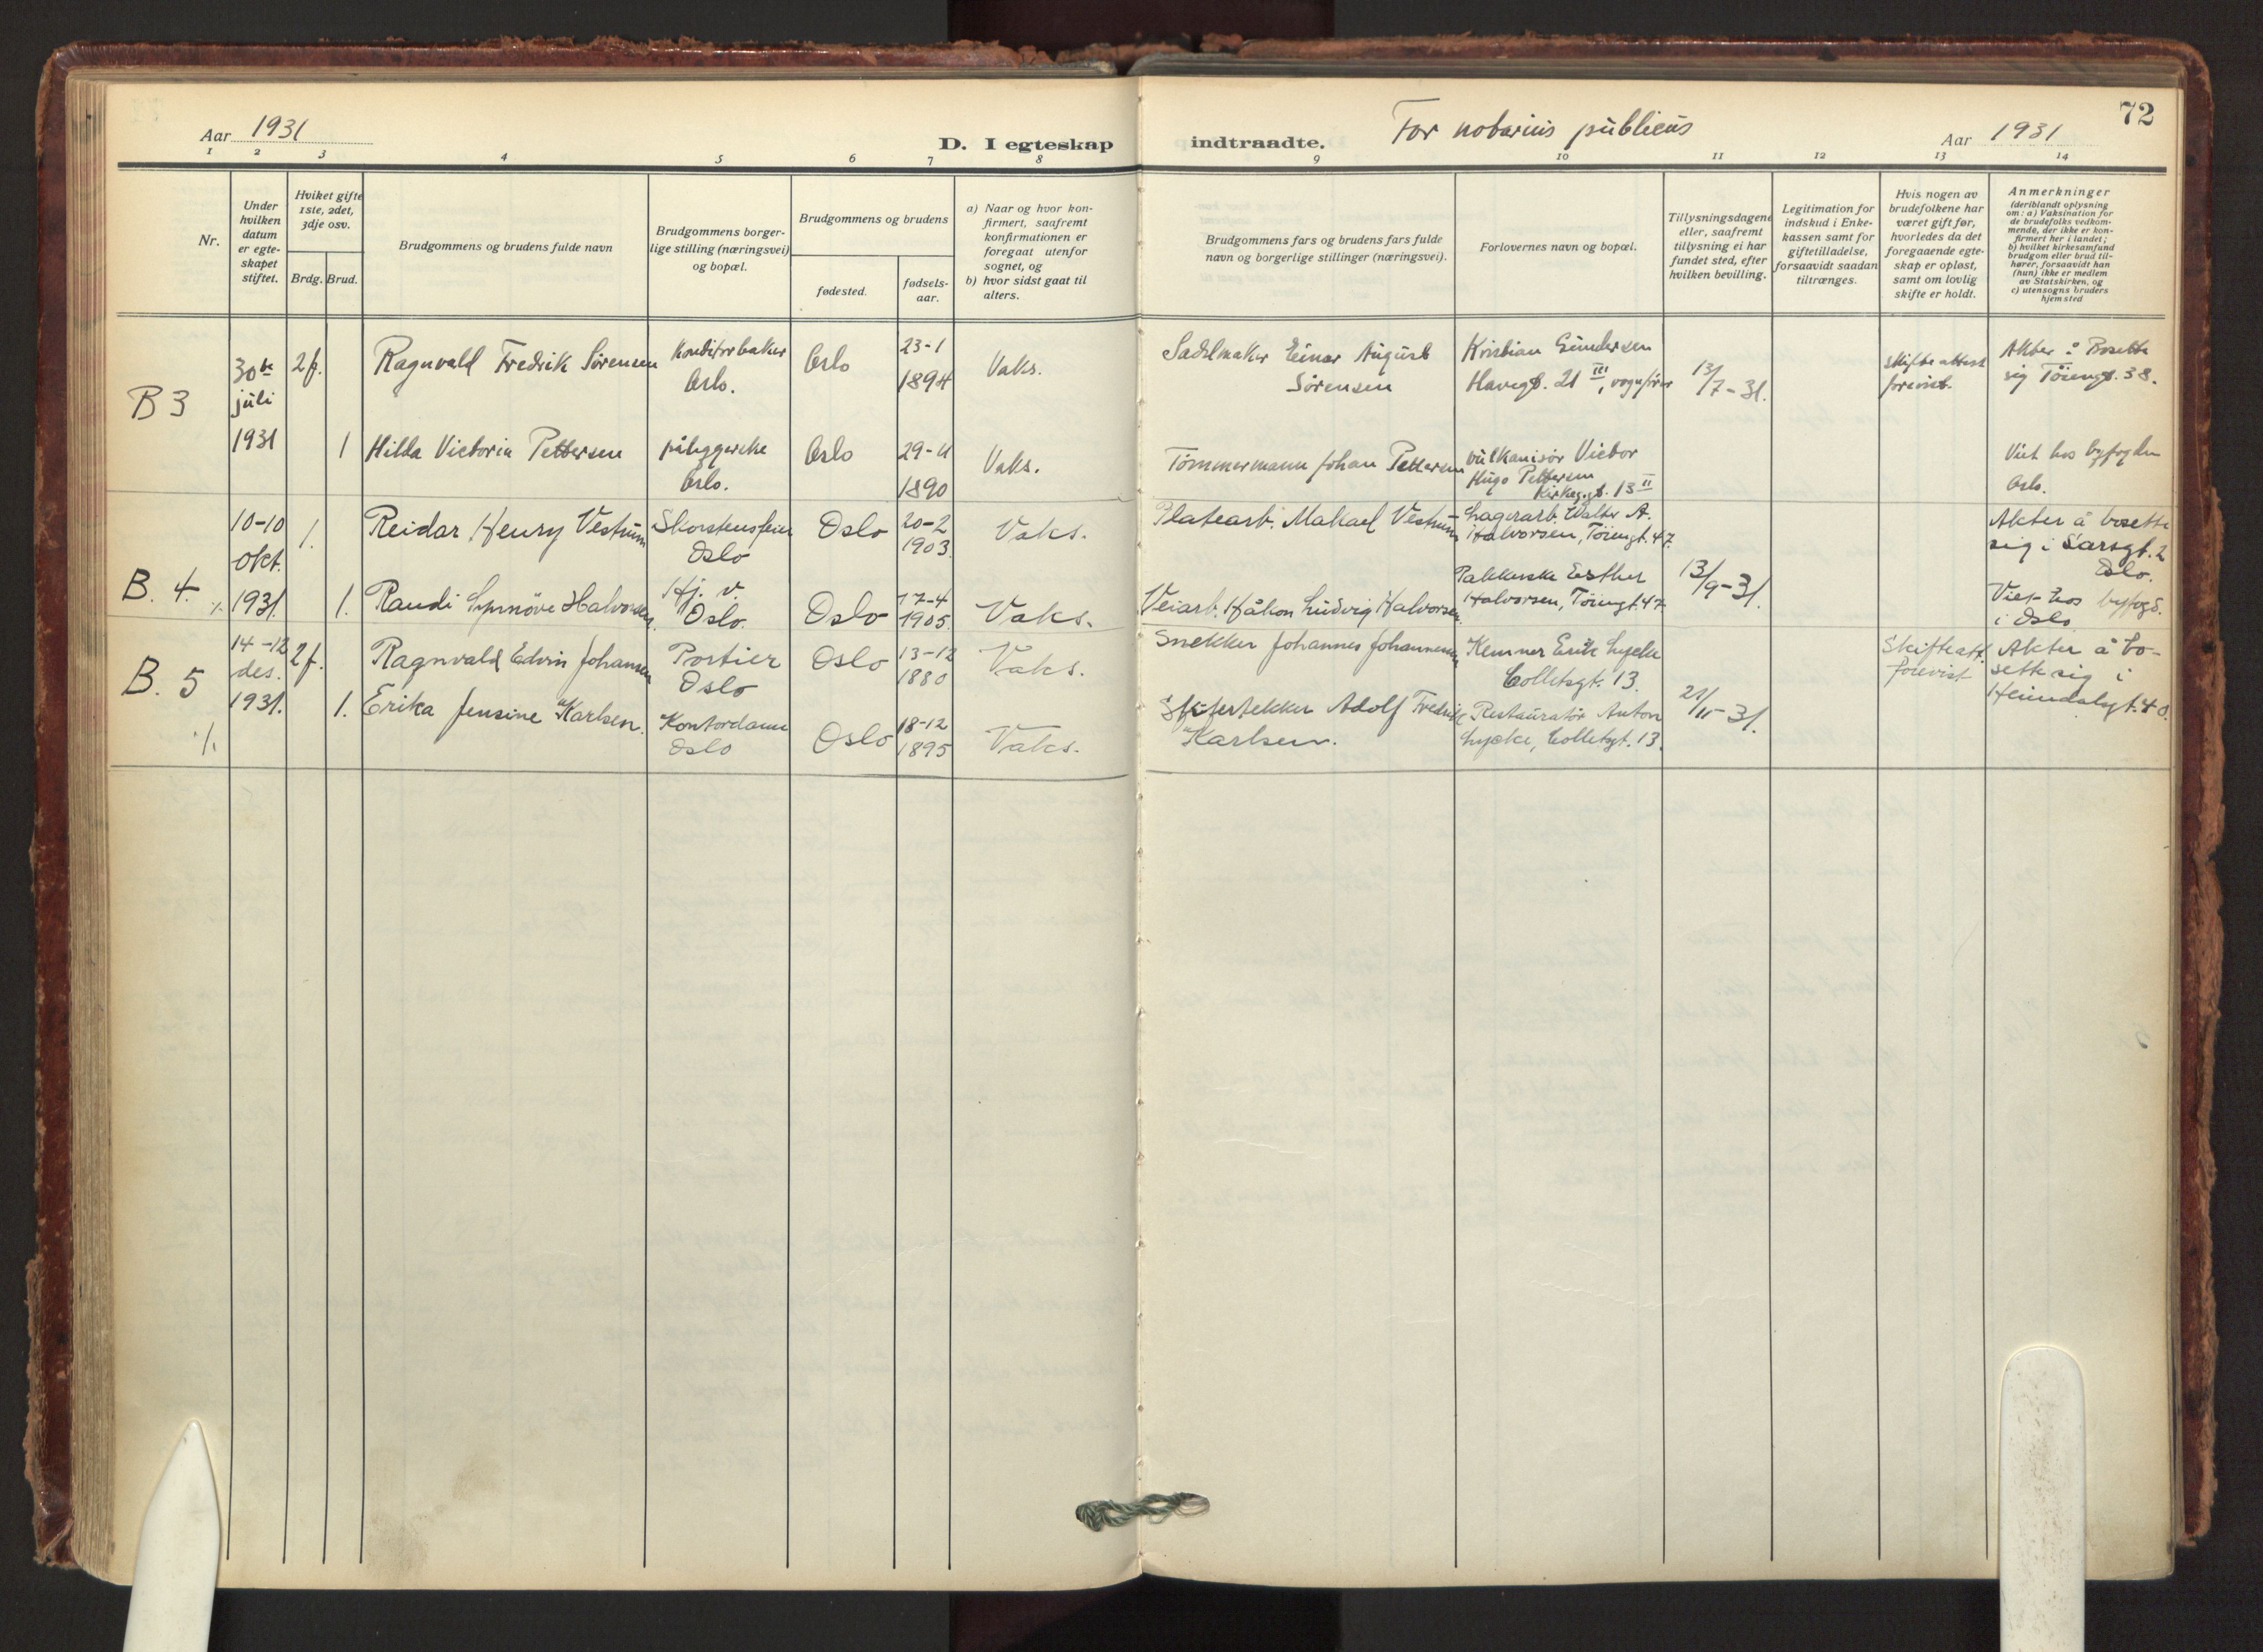 72
Aar 1931
D. I egteskap indtraadte.
For notarius publicus
Aar 1931
1 2 3 4 5 6 7 8 9 10 11 12 13 14
Nr.
Under
hvilken
datum
er egte-
skapet
stiftet.
Hviket gifte
1ste, 2det,
3dje osv.
Brdg. Brud.
Brudgommens og brudens fulde navn
Brudgommens borger-
lige stilling (næringsvei)
og bopæl.
Brudgommens og brudens
fødested.
fødsels-
aar.
a) Naar og hvor kon-
firmert, saafremt
konfirmationen er
foregaat utenfor
sognet, og
b) hvor sidst gaat til
alters.
Brudgommens fars og brudens fars fulde
navn og borgerlige stillinger (næringsvei).
Forlovernes navn og bopæl.
Tillysningsdagene
eller, saafremt
tillysning ei har
fundet sted, efter
hvilken bevilling.
Legitimation for
indskud i Enke-
kassen samt for
giftetilladelse,
forsaavidt saadan
tiltrænges.
Hvis nogen av
brudefolkene har
været gift før,
hvorledes da det
foregaaende egte-
skap er opløst,
samt om lovlig
skifte er holdt.
Anmerkninger
(deriblandt oplysning
om: a) Vaksination for
de brudefolks vedkom-
mende, der ikke er kon-
firmert her i landet;
b) hvilket kirkesamfund
brudgom eller brud til-
hører, forsaavidt han
(hun) ikke er medlem
av Statskirken, og
c) utensogns bruders
hjemsted
B 3
30te
juli
1931
2 f.
Ragnvald Fredrik Sørensen
Konditorbaker
Oslo.
Oslo
23-1
1894
Vaks.
Sadelmaker Einar August
Sørensen
Kristian Gundersen
Havegt. 21 III, vognfører
13/7-31.
Skifteattest
forevist.
Akter å Bosette
sig Tøiengt. 38.
1
Hilda Victoria Pettersen
påleggerske
Oslo.
Oslo
29-11
1890
Vaks.
Tømmermann Johan Pettersen
vulkanisør Victor
Hugo Pettersen
Kirkegt. 13 II
Viet hos byfogden
Oslo.
B. 4.
10-10
okt.
1931.
1.
Reidar Henry Vestrum
Skorstensfeier
Oslo
Oslo
20-2
1903.
Vaks.
Platearb. Makael Vestrum
Lagerarb. Walter A.
Halvorsen, Tøiengt. 47.
13/9-31.
Akter å bosette
sig i Sarsgt. 2
Oslo.
1.
Randi Synnöve Halvorsen.
Hj. v.
Oslo.
Oslo
17-4
1905.
Vaks.
Veiarb. Håkon Ludvig Halvorsen.
Pakkerske Esther
Halvorsen, Tøiengt. 47
Viet hos byfogd.
i Oslo
B. 5
14-12
des.
1931.
2 f.
Ragnvald Edvin Johansen
Portier
Oslo
Oslo
13-12
1880
Vaks.
Snekker Johannes Johannessen
Kemner Erik Lycke
Colletsgt. 13.
21/11-31.
Skifteatt.
forevist
Akter å bo-
sette sig i
Heimdalsgt. 40.
1.
Erika Jensine Karlsen.
Kontordame
Oslo
Oslo
18-12
1895
Vaks.
Skifertekker Adolf Fredrik
Karlsen.
Restauratør Anton
Lycke, Colletsgt. 13.